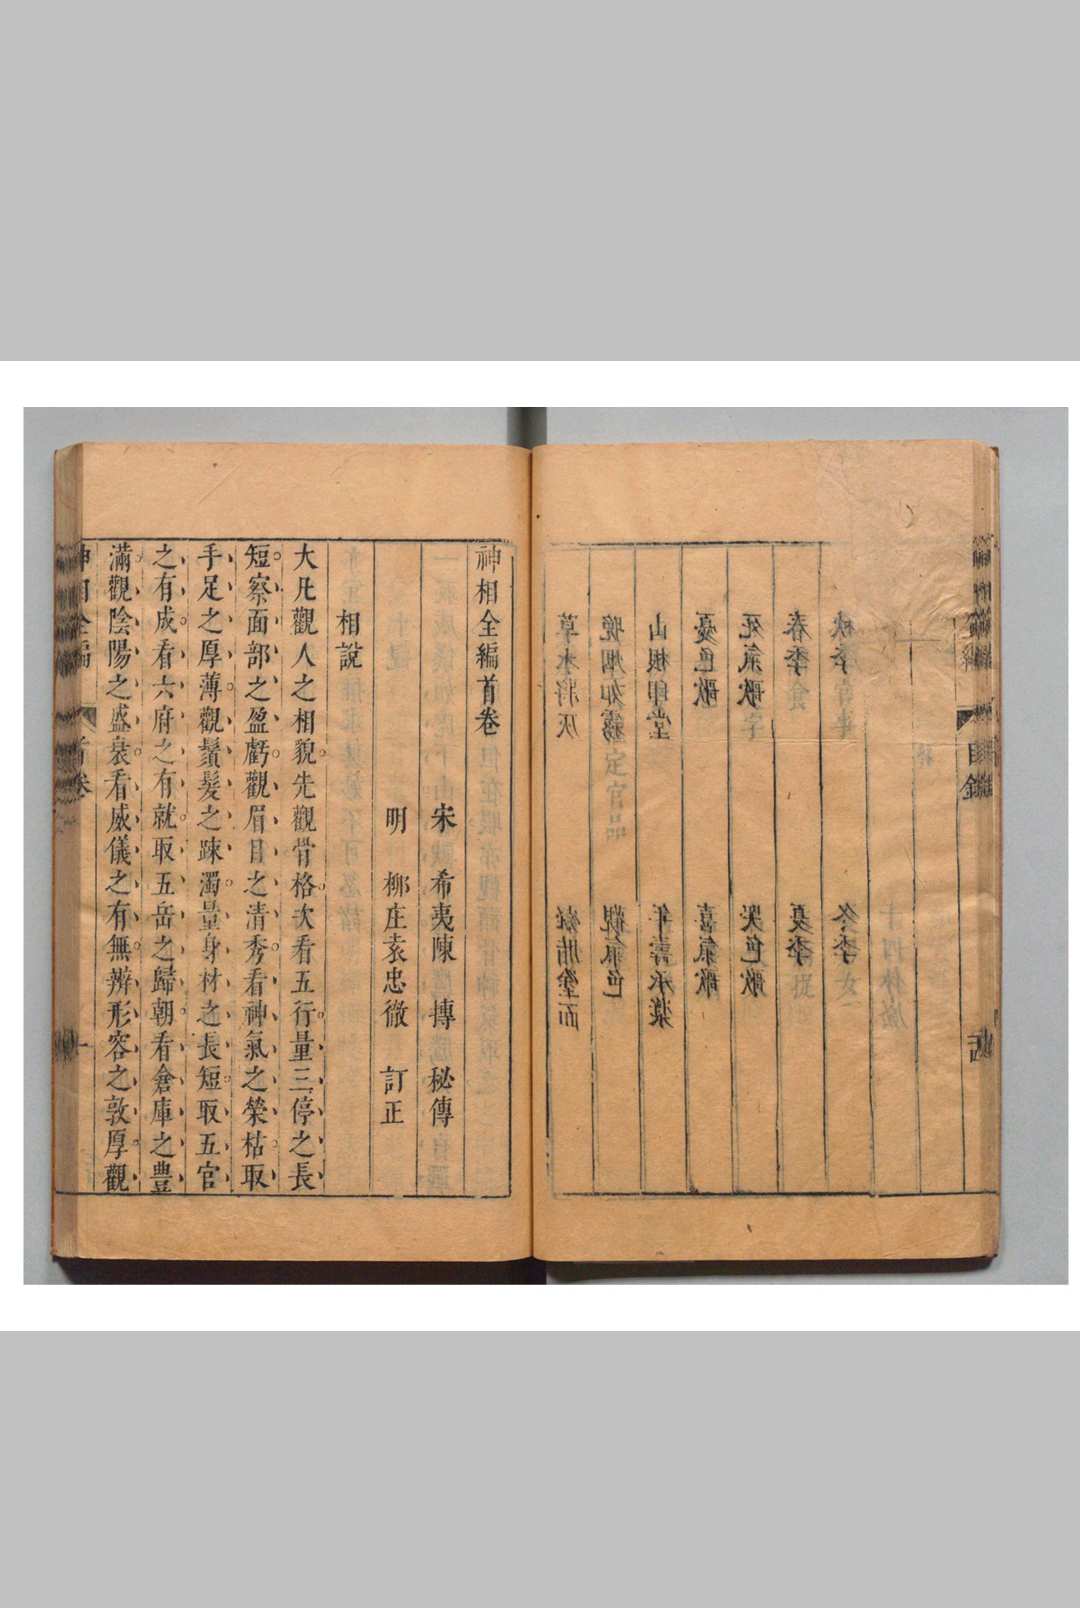 神相全編首卷
宋 希夷陳 摶 秘傳
明 柳庄袁忠徹 訂正
相說
大凡觀人之相貌先觀骨格次看五行量三停之長
短察面部之盈虧觀眉目之清秀看神氣之榮枯取
手足之厚薄觀鬚髮之踈濁量身材之長短取五官
之有成看六府之有就取五岳之歸朝看倉庫之豊
滿觀陰陽之盛衰看威儀之有無辨形容之敦厚觀
秋季 冬季
春季 夏季
死氣歌 哭色歌
憂色歌 喜氣歌
山根印堂 年壽承漿
晚烟如霧 觀氣色
草木將灰
目錄